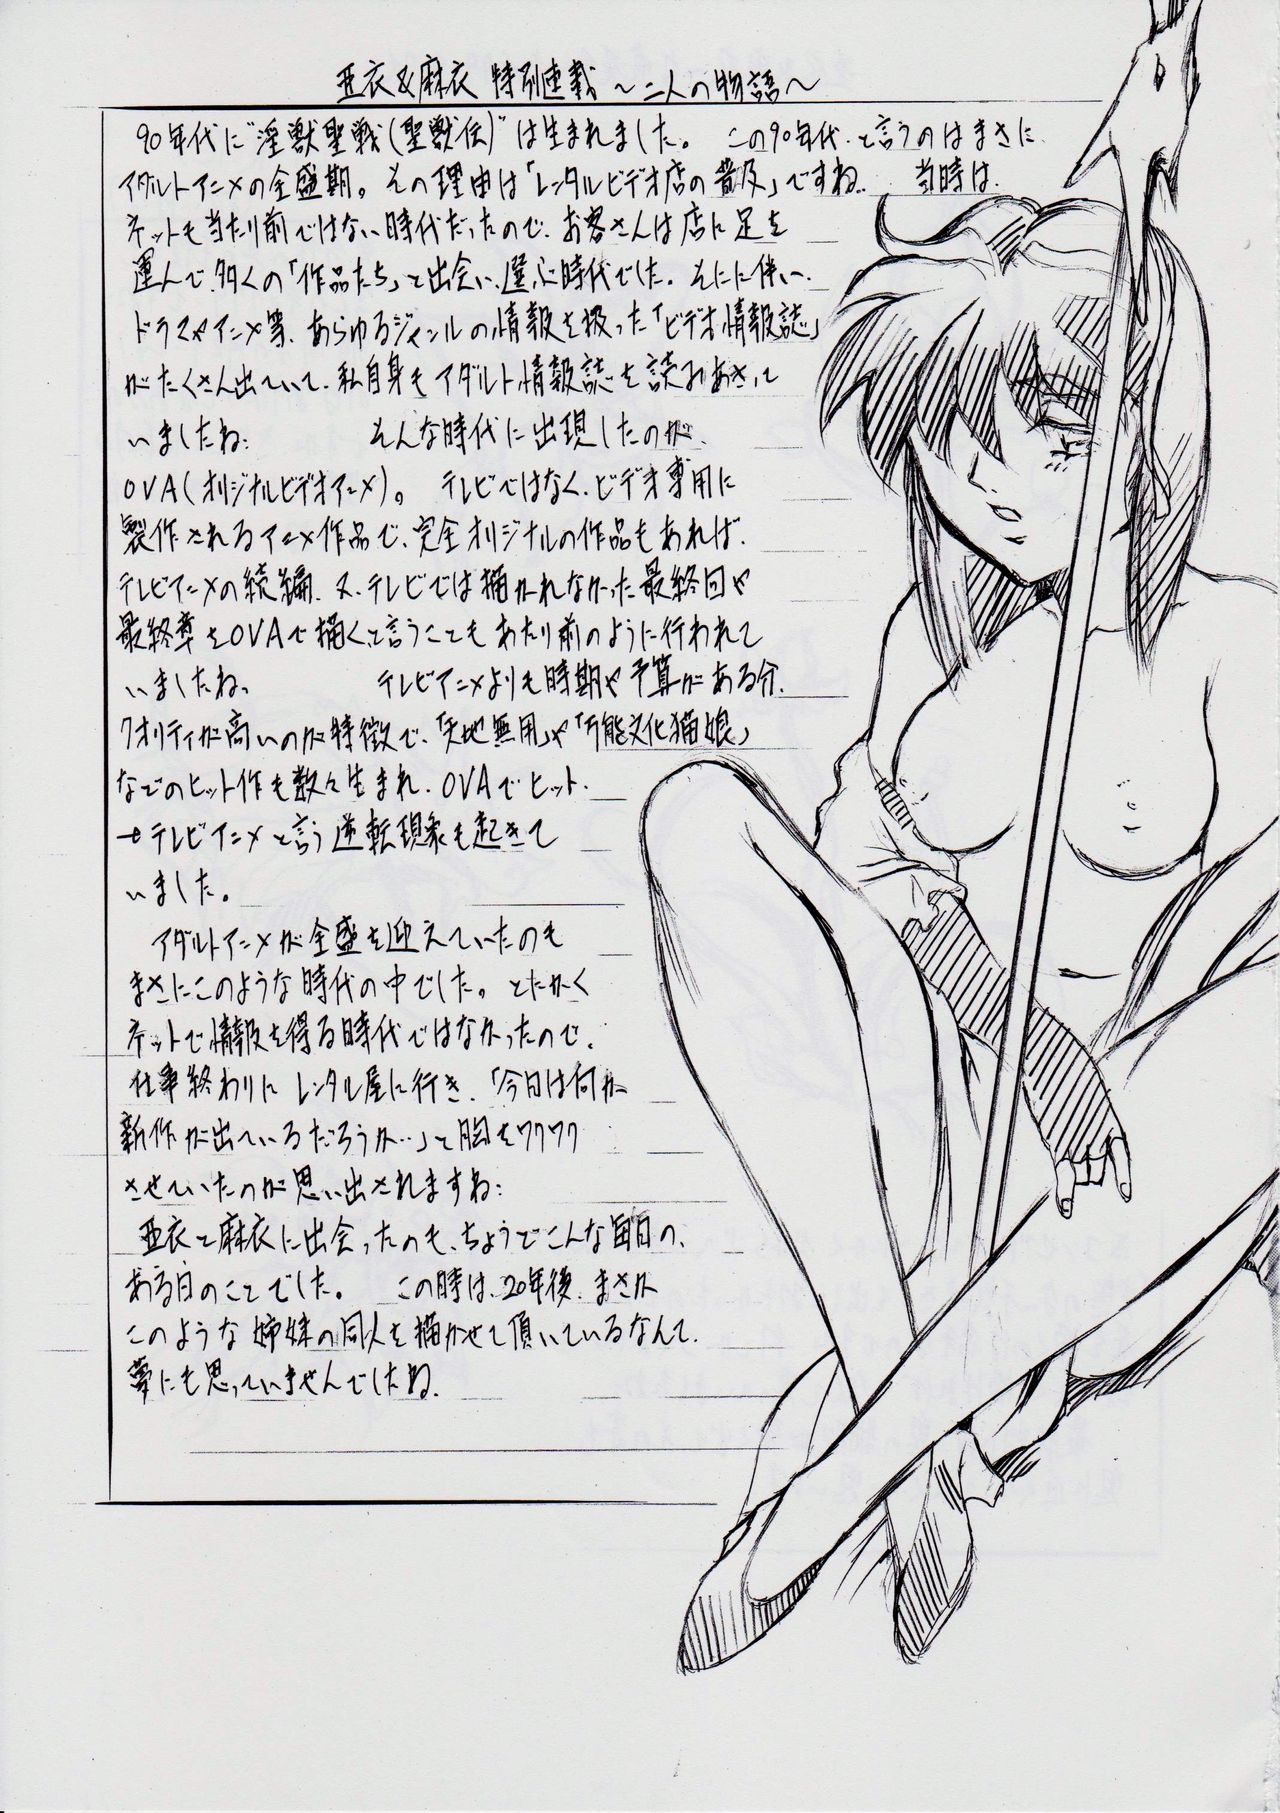 亜衣&麻衣 特別連載 ～二人の物語～
90年代に"淫獣聖戦(聖獣伝)"は生まれました。 この90年代、と言うのはまさに、
アダルトアニメの全盛期。その理由は「レンタルビデオ店の普及」ですね。 当時は、
ネットも当たり前ではない時代だったので、お客さんは店に足を
運んで、多くの「作品たち」と出会い、選ぶ時代でした。そんに伴い、
ドラマやアニメ等、あらゆるジャンルの情報を扱った「ビデオ情報誌」
がたくさん出ていて、私自身もアダルト情報誌を読みあさって
いましたね。 そんな時代に出現したのが、
OVA(オリジナルビデオアニメ)。 テレビではなく、ビデオ専用に
製作されるアニメ作品で、完全オリジナルの作品もあれば、
テレビアニメの続編、又、テレビでは描かれなかった最終回や
最終章をOVAで描くと言うこともあたり前のように行われて
いましたね。 テレビアニメよりも時期や予算がある分、
クオリティが高いのが特徴で、「天地無用」や「万能文化猫娘」
などのヒット作も数々生まれ、OVAでヒット、
→テレビアニメと言う逆転現象も起きて
いました。
アダルトアニメが全盛を迎えていたのも
まさにこのような時代の中でした。とにかく
ネットで情報を得る時代ではなかったので、
仕事終わりにレンタル屋に行き、「今日は何か
新作が出ているだろうか…」と胸をワクワク
させていたのが思い出されますね。
亜衣と麻衣に出会ったのも、ちょうどこんな毎日の、
ある日のことでした。 この時は、20年後、まさか
このような姉妹の同人を描かせて頂いているなんて、
夢にも思っていませんでしたね。